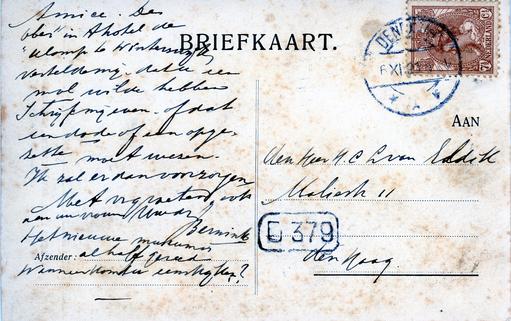 Amice. De
ober in A hotel de
"Klomp te Winterswijk
vertelde mij dat u een
mol wilde hebben
Schrijf mij even of dat
een doode of een opge-
zette moet wezen.
Ik zal er dan voor zorgen
Met vr. groeten, ook
aan uw vrouw
Bernink
Het nieuwe museum is
al half gereed
wanneer kom je eens kijken?
BRIEFKAART.
Afzender:
DENE
6 XI
7½
AAN
den Heer H.C. L. van Eldik
Malie 11
D 379
Den Haag.